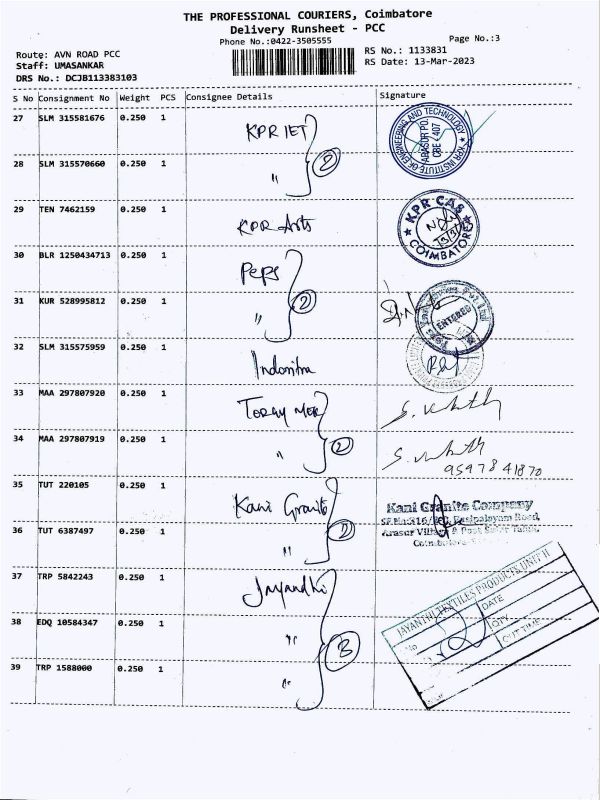 THE PROFESSIONAL COURIERS, Coimbatore
Delivery Runsheet - PCC
Phone No.:0422-3505555
Page No.:3
Route: AVN ROAD PCC
RS No.: 1133831
Staff: UMASANKAR
RS Date: 13-Mar-2023
DRS No.: DCJB113383103
S No Consignment No Weight PCS Consignee Details Signature
27 SLM 315581676 0.250 1 KPR IET
KPR INSTITUTE OF ENGINEERING AND TECHNOLOGY
ARASUR PO.
CBE - 407
28 SLM 315570660 0.250 1 " 2
29 TEN 7462159 0.250 1 KPR Arts
KPR CAS
COIMBATORE
30 BLR 1250434713 0.250 1 Peps
31 KUR 528995812 0.250 1 " 2
ENTERED
32 SLM 315575959 0.250 1
33 MAA 297807920 0.250 1 Toray
34 MAA 297807919 0.250 1 " 2
9597841870
35 TUT 220105 0.250 1 Kani Granite
Kani Granite Company
36 TUT 6387497 0.250 1 " 2
37 TRP 5842243 0.250 1 Jayandhi
JAYANTHI TEXTILES PRODUCTS UNIT II
No
DATE
QTY
OUT TIME
38 EDQ 10584347 0.250 1 " 3
39 TRP 1588000 0.250 1 "